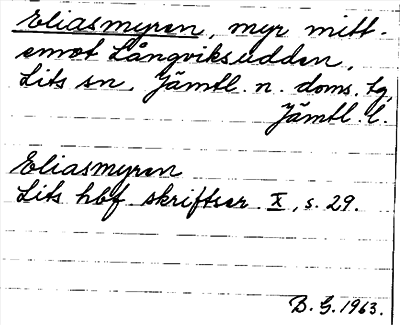 Eliasmyren, myr mitt-
emot Långviksudden,
Lits sn, Jämtl. n. doms. tg,
Jämtl. l.
Eliasmyren
Lits hbf skriftser. X, s. 29.
B. G. 1963.